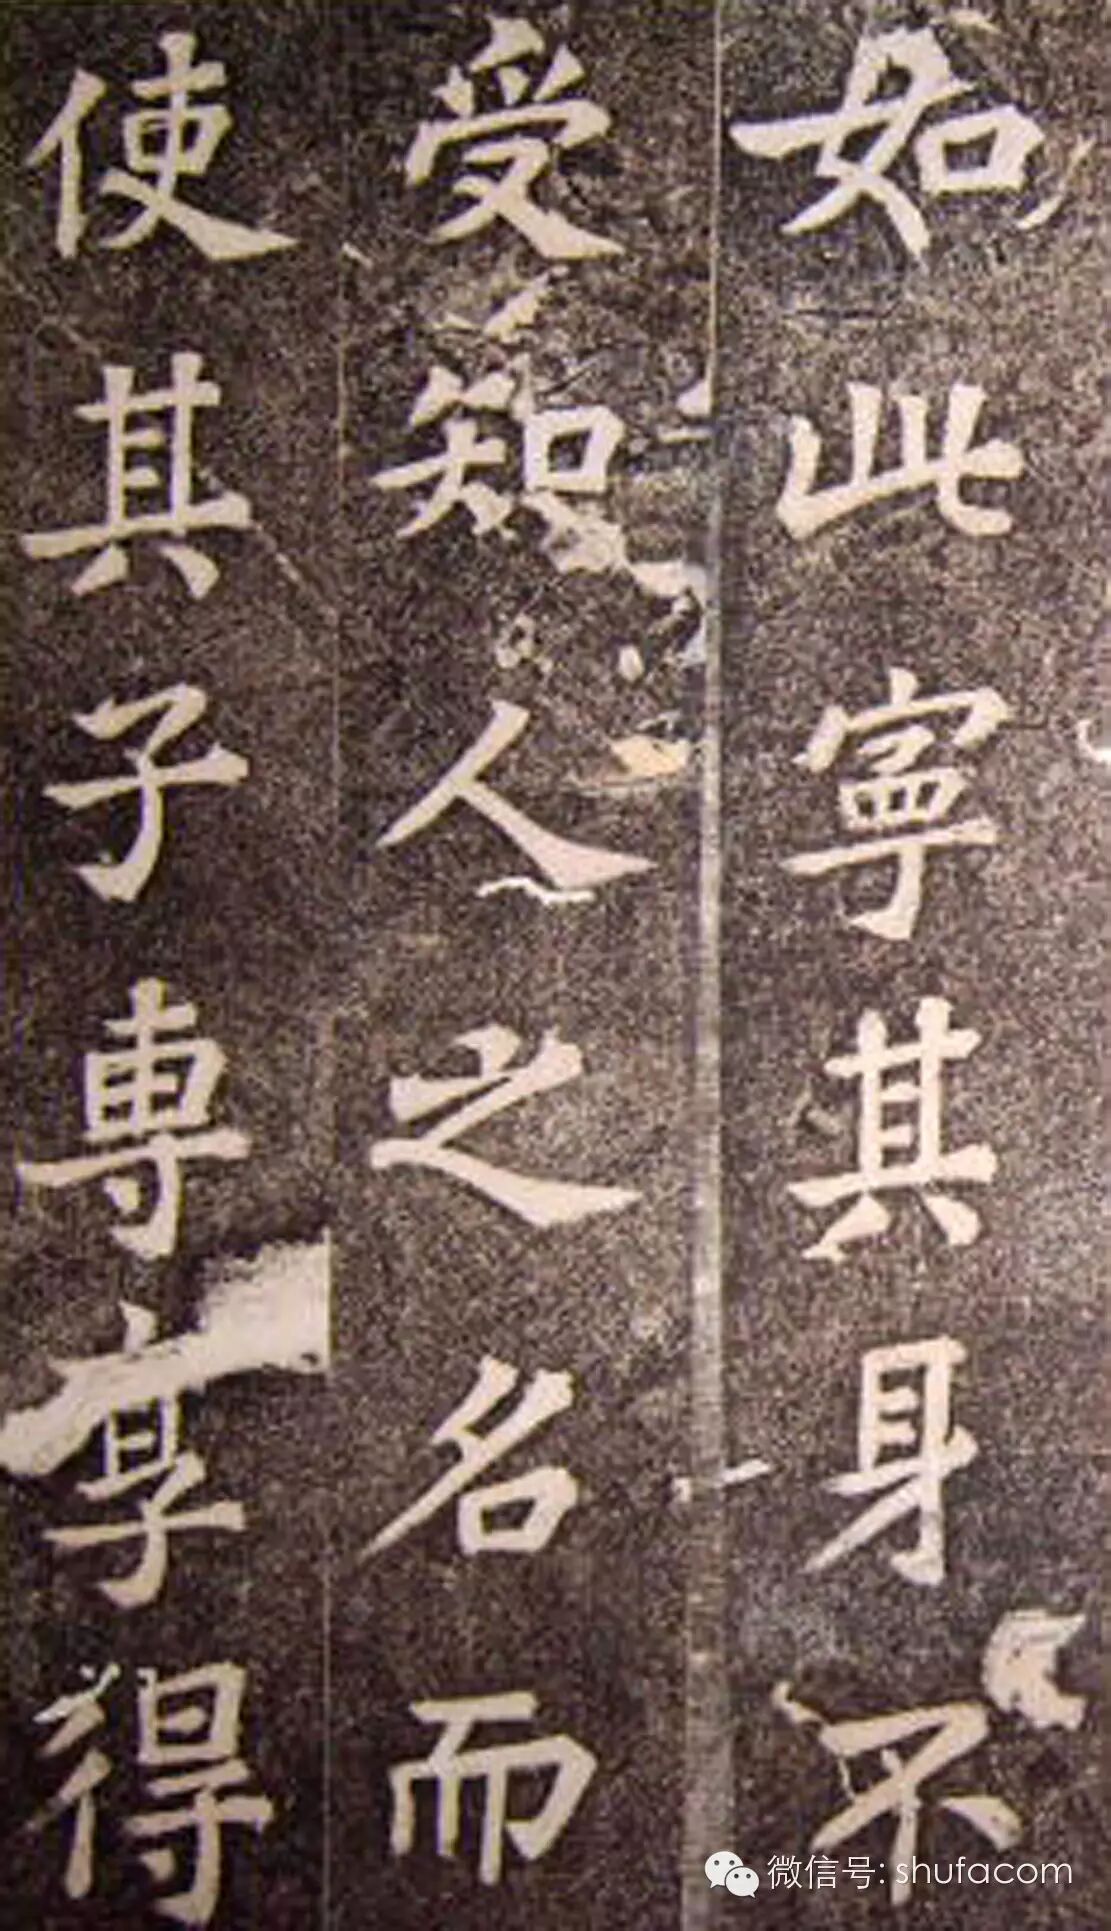 如此寧其身不
受知人之名而
使其子專享得
微信号: shufacom